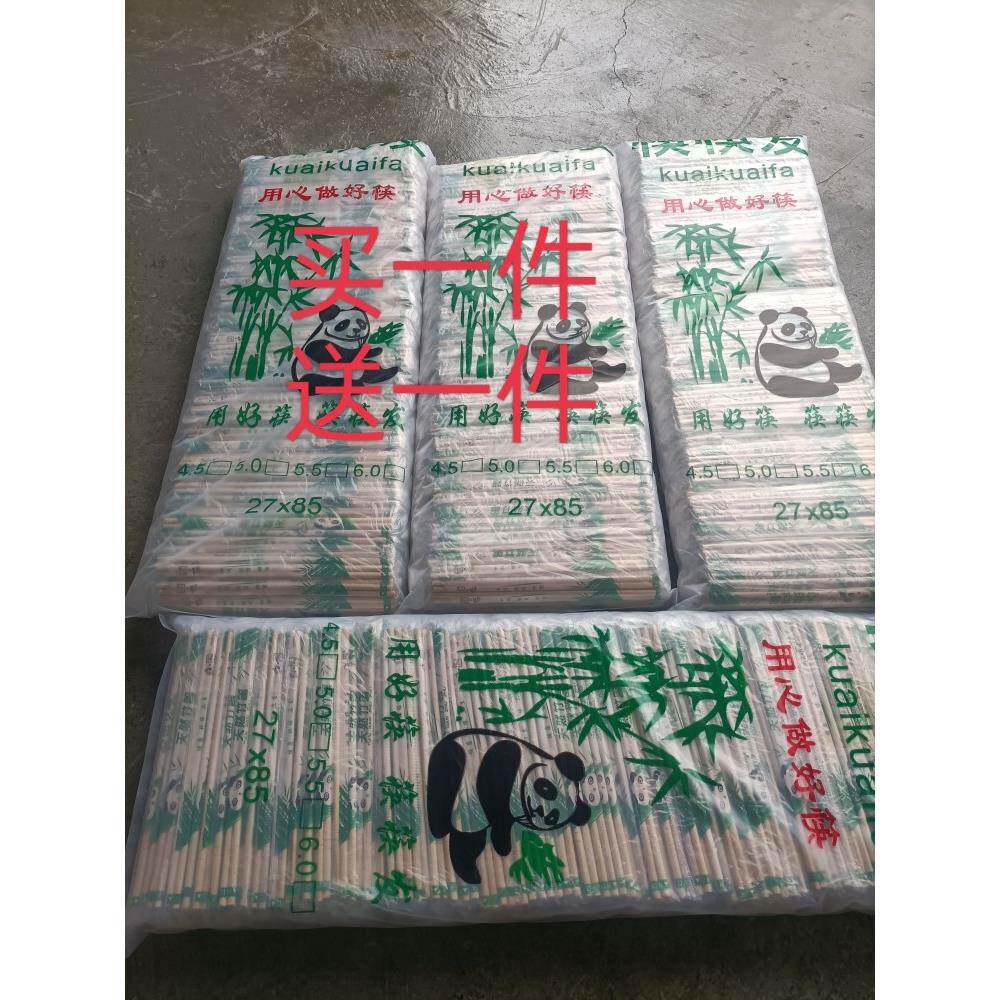 kuaikuaifa
用心做好筷
用好筷 筷筷发
4.5 5.0 5.5 6.0
27x85
kuaikuaifa
用心做好筷
用好筷 筷筷发
4.5 5.0 5.5 6.0
27x85
筷筷发
kuaikuaifa
用心做好筷
用好筷 筷筷发
4.5 5.0 5.5 6.0
27x85
买一件
送一件
kuaikuaifa
用心做好筷
用好筷 筷筷发
4.5 5.0 5.5 6.0
27x85